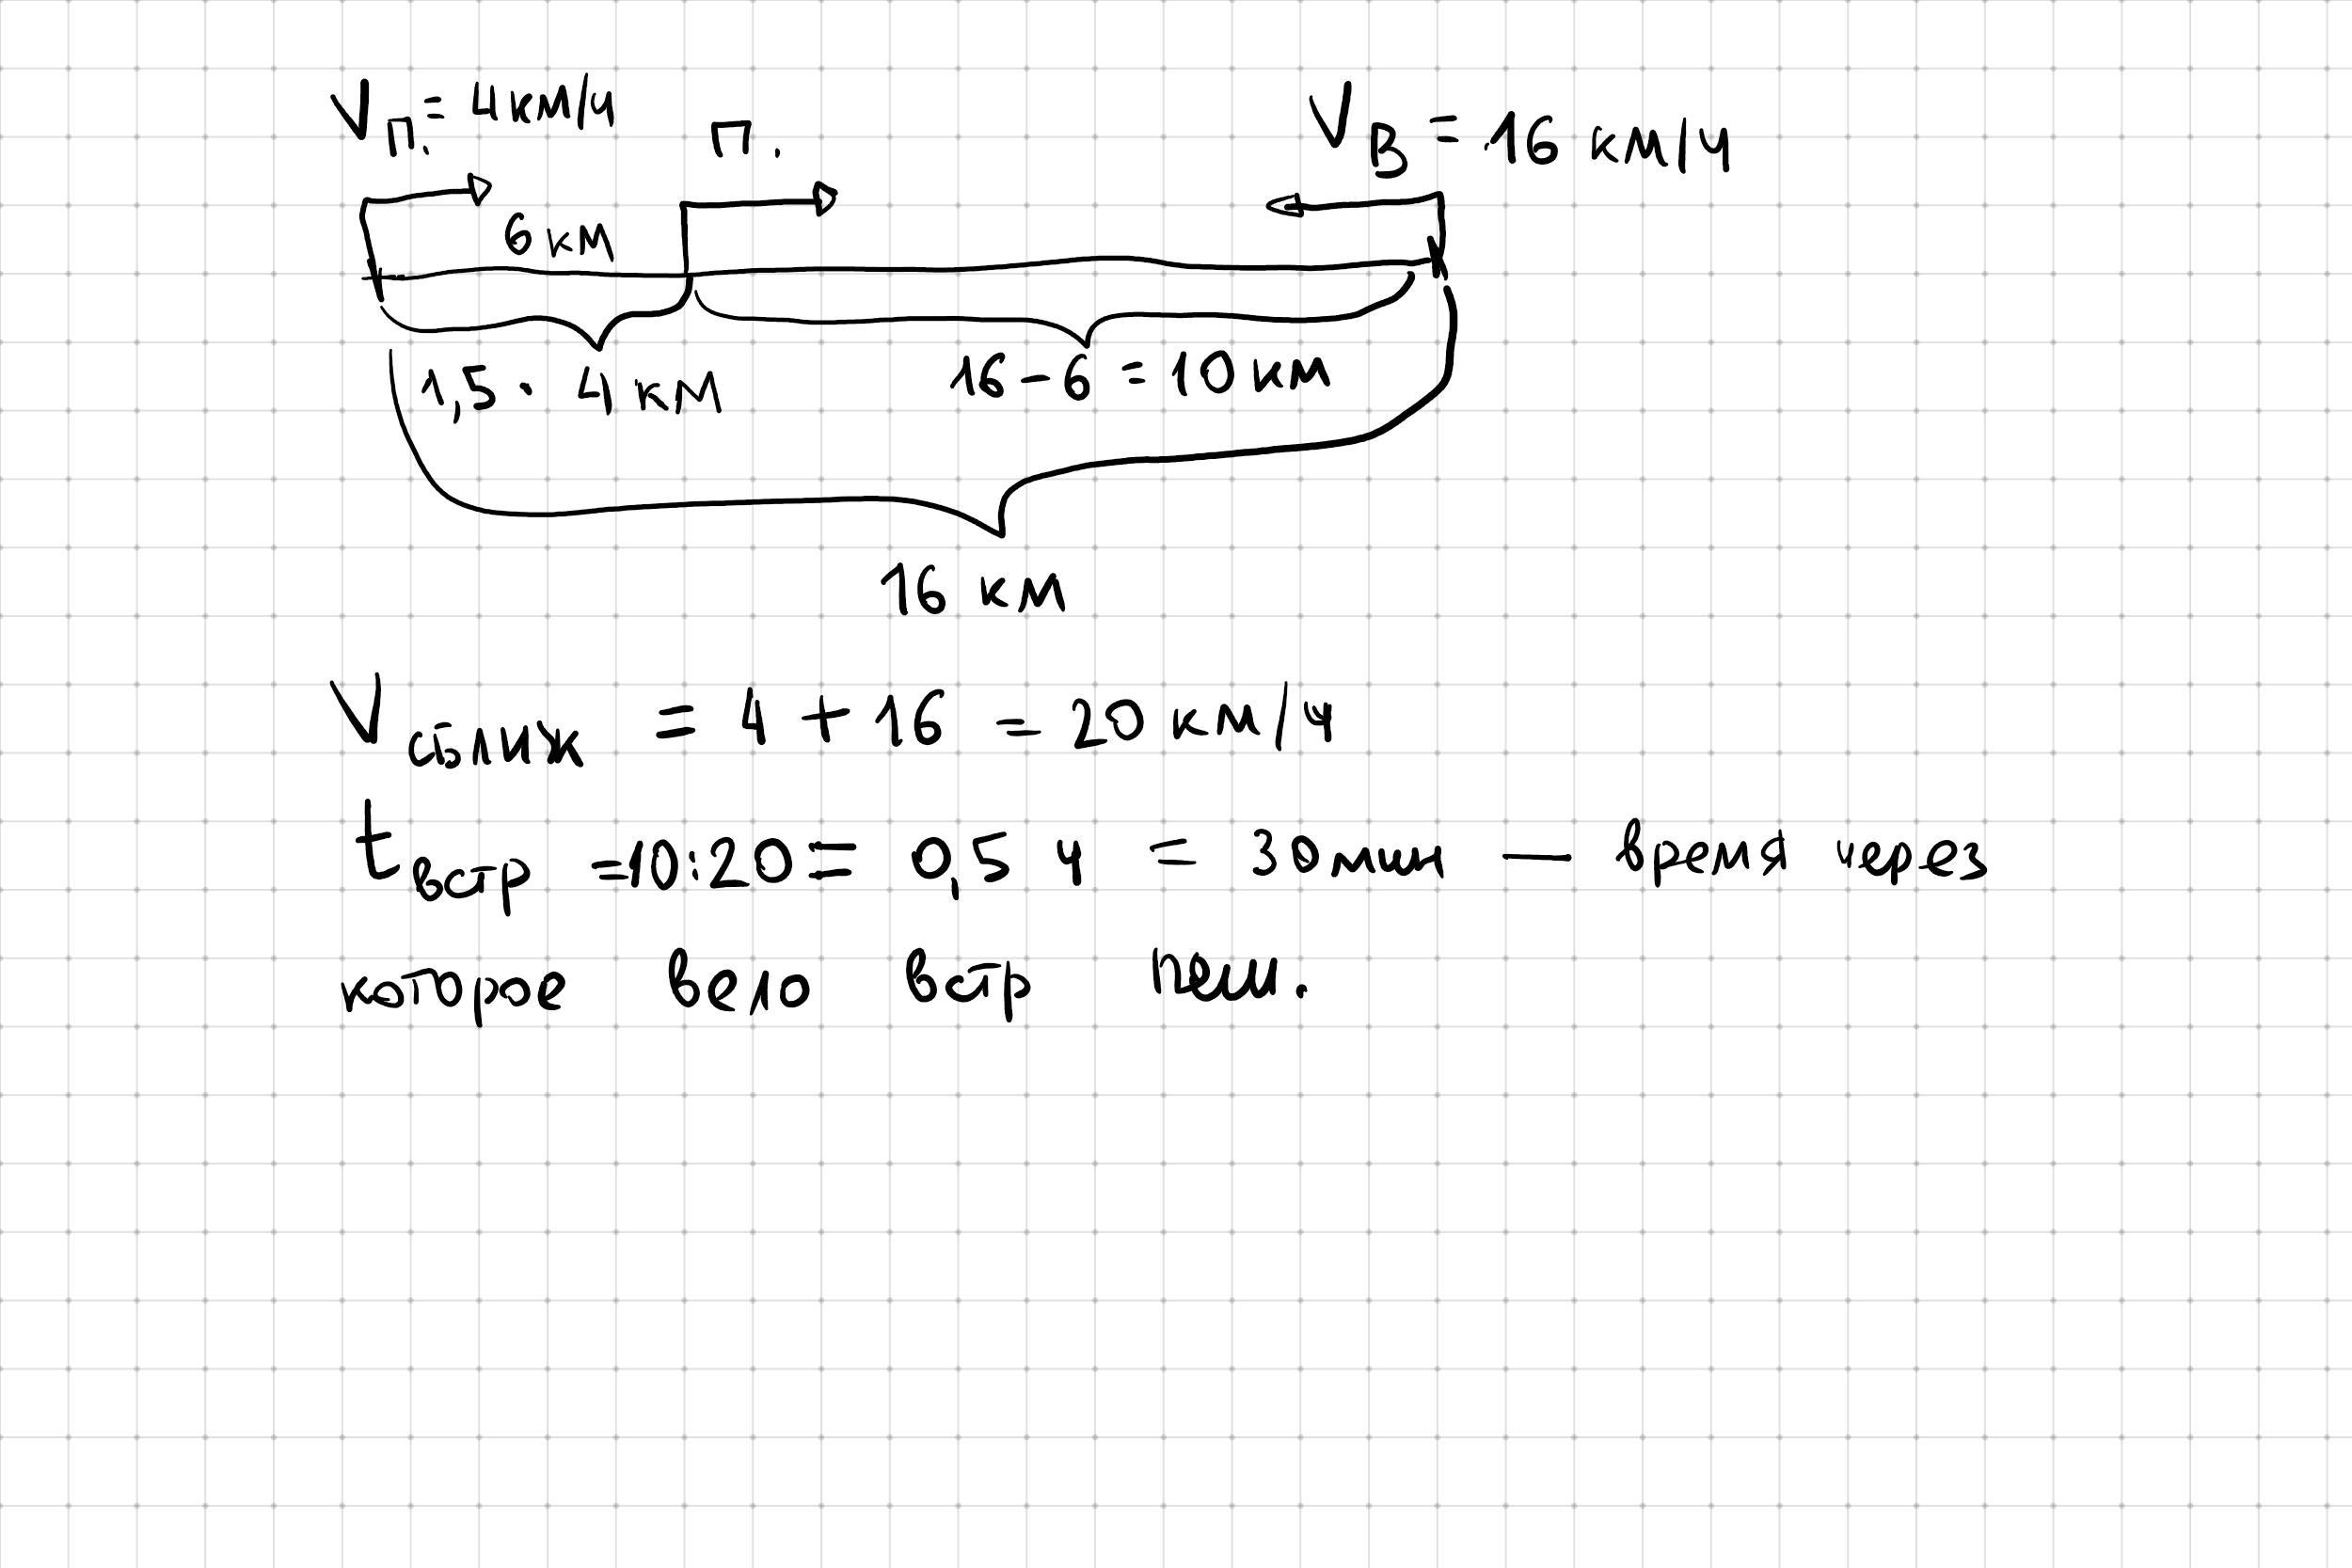 Vп. = 4км/ч п. Vв = 16 км/ч
6 км
1,5 · 4 км 16 - 6 = 10 км
16 км
Vсближ = 4 + 16 = 20 км/ч
tвстр = 10:20 = 0,5 ч = 30 мин — время через
которое вело встр пеш.